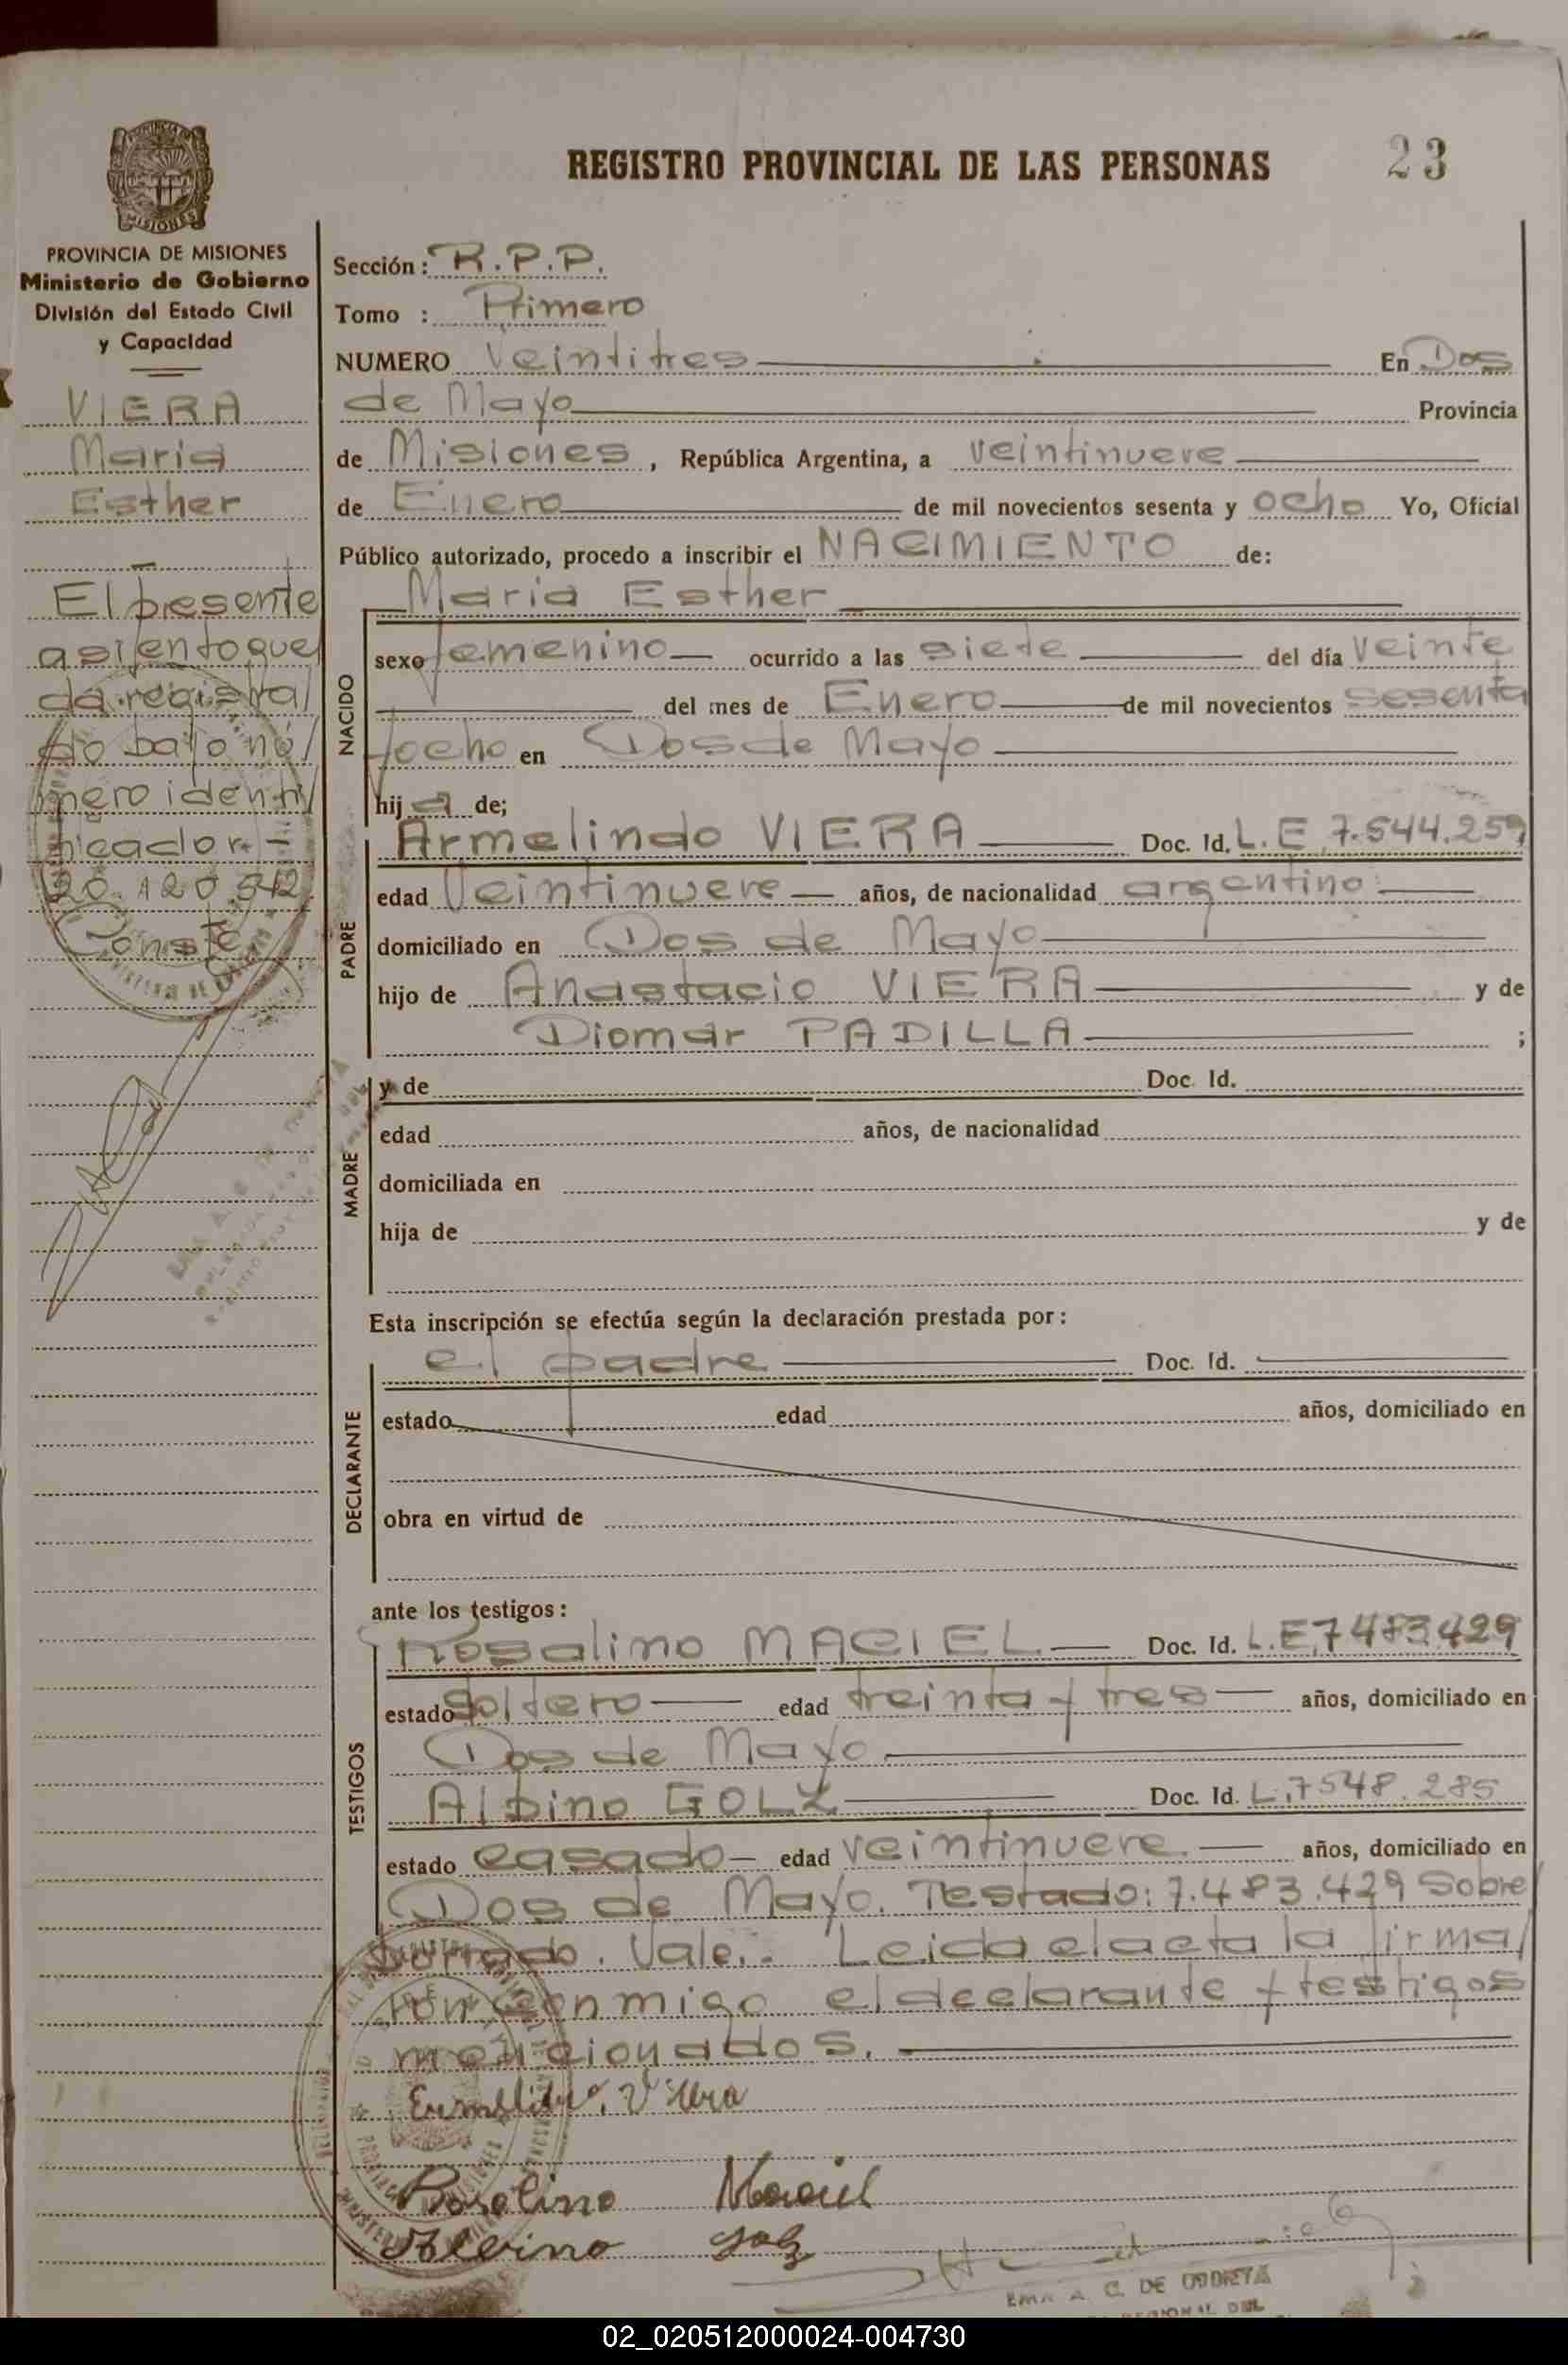 REGISTRO PROVINCIAL DE LAS PERSONAS 23
MISIONES
PROVINCIA DE MISIONES
Ministerio de Gobierno
División del Estado Civil
y Capacidad
VIERA
Maria
Esther
El presente
asi/ento que/
da registra/
do bajo nú/
mero identi/
ficador.-
20.120.542
Conste
Sección: R.P.P.
Tomo : Primero
NUMERO Veintitres En Dos
de Mayo Provincia
de Misiones, República Argentina, a veintinueve
de Enero de mil novecientos sesenta y ocho Yo, Oficial
Público autorizado, procedo a inscribir el NACIMIENTO de:
NACIDO
Maria Esther
sexo femenino ocurrido a las siete del día veinte
del mes de Enero de mil novecientos sesenta
y ocho en Dos de Mayo
hija de;
PADRE
Armelindo VIERA Doc. Id. L.E. 7.544.259
edad Veintinueve años, de nacionalidad argentino
domiciliado en Dos de Mayo
hijo de Anastacio VIERA y de
Diomar PADILLA ;
MADRE
y de Doc. Id.
edad años, de nacionalidad
domiciliada en
hija de y de
Esta inscripción se efectúa según la declaración prestada por:
DECLARANTE
el padre Doc. Id.
estado edad años, domiciliado en
obra en virtud de
ante los testigos:
TESTIGOS
Rosalino MACIEL Doc. Id. L.E. 7483429
estado Soltero edad treinta y tres años, domiciliado en
Dos de Mayo
Albino GOLZ Doc. Id. L. 7548.285
estado casado edad veintinueve años, domiciliado en
Dos de Mayo. Testado: 7.483.429 Sobre
borrado. Vale.: Leida el acta la firma/
ron conmigo el declarante y testigos
mencionados.
Viera
Rosalino Maciel
Albino Golz
EMA A. C. DE
02_020512000024-004730